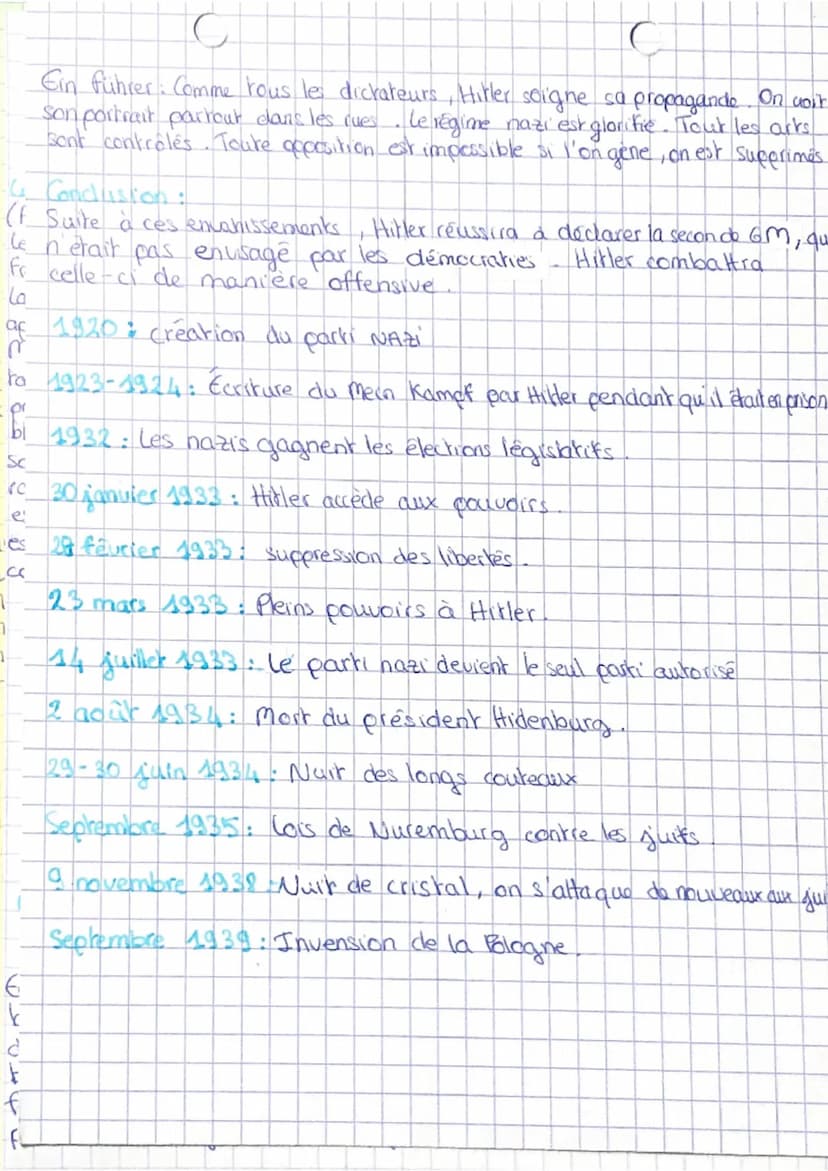 Ein führer : Comme tous les dictateurs, Hitler soigne sa propagande. On voit
son portrait partout dans les rues. Le régime nazi est glorifié. Tout les arts
sont contrôlés. Toute opposition est impossible si l'on gène, on est supprimés
4 Conclusion :
Suite à ces envahissements, Hitler réussira à déclarer la seconde GM, qu
n'était pas envisagé par les démocraties - Hitler combattra
celle-ci de manière offensive.
1920 : création du parti NAZi
1923-1924 : Écriture du Mein Kampf par Hilder pendant qu'il était en prison
1932 : Les nazis gagnent les élections législatifs.
30 janvier 1933 : Hitler accède aux pouvoirs.
28 février 1933 : suppression des libertés.
23 mars 1933 : Pleins pouvoirs à Hitler.
14 juillet 1933 : Le parti nazi devient le seul parti autorisé
2 août 1934 : Mort du président Hidenburg.
29-30 juin 1934 : Nuit des longs couteaux
Septembre 1935 : Lois de Nuremburg contre les juifs.
9 novembre 1938 : Nuit de cristal, on s'attaque de nouveaux aux jui
Septembre 1939 : Invension de la Pologne.